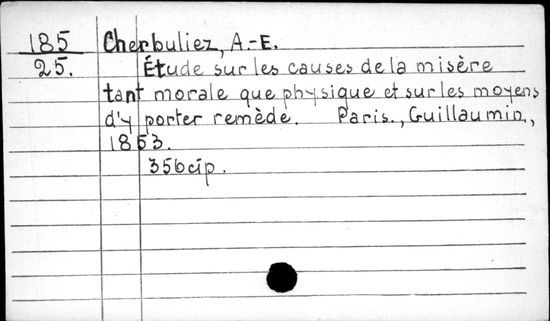 185 Cherbuliez, A.-E.
25. Étude sur les causes de la misère
tant morale que physique et sur les moyens
d'y porter remède. Paris., Guillaumin.,
1853.
356 p.